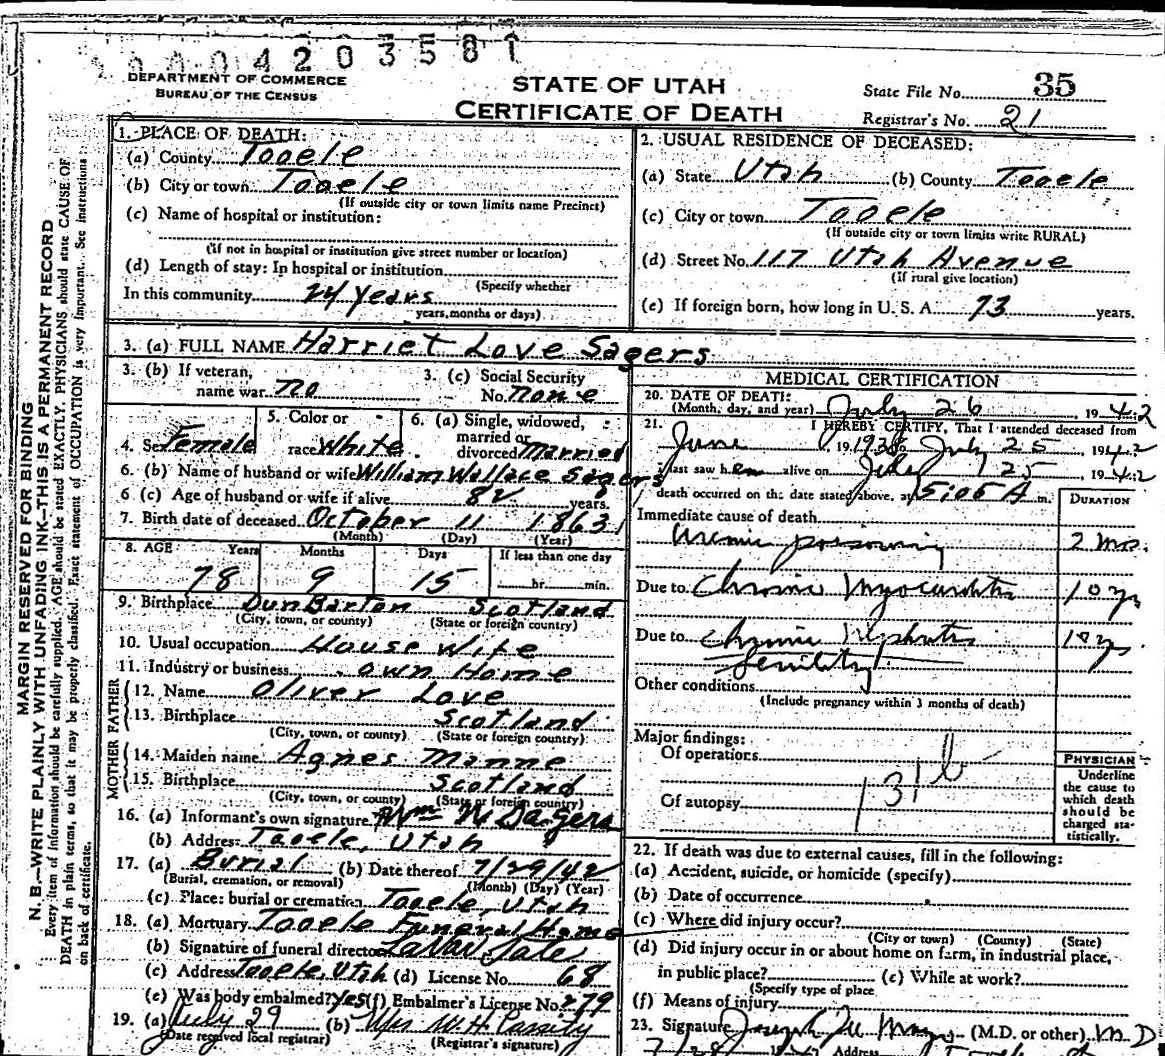 0 4 2 0 3 5 8 1
DEPARTMENT OF COMMERCE
BUREAU OF THE CENSUS
STATE OF UTAH
CERTIFICATE OF DEATH
State File No. 35
Registrar's No. 21
MARGIN RESERVED FOR BINDING
N. B.—WRITE PLAINLY WITH UNFADING INK—THIS IS A PERMANENT RECORD
Every item of information should be carefully supplied. AGE should be stated EXACTLY. PHYSICIANS should state CAUSE OF
DEATH in plain terms, so that it may be properly classified. Exact statement of OCCUPATION is very important. See instructions
on back of certificate.
1. PLACE OF DEATH:
(a) County Tooele
(b) City or town Tooele
(If outside city or town limits name Precinct)
(c) Name of hospital or institution:
(If not in hospital or institution give street number or location)
(d) Length of stay: In hospital or institution
(Specify whether
In this community 24 years
years, months or days)
2. USUAL RESIDENCE OF DECEASED:
(a) State Utah (b) County Tooele
(c) City or town Tooele
(If outside city or town limits write RURAL)
(d) Street No. 117 Utah Avenue
(If rural give location)
(e) If foreign born, how long in U. S. A. 73 years.
3. (a) FULL NAME Harriet Love Sagers
3. (b) If veteran,
name war no
3. (c) Social Security
No. none
4. Sex Female
5. Color or
race White
6. (a) Single, widowed,
married or
divorced Married
6. (b) Name of husband or wife William Wallace Sagers
6. (c) Age of husband or wife if alive 82 years.
7. Birth date of deceased October 11 1863
(Month) (Day) (Year)
8. AGE Years Months Days If less than one day
78 9 15 hr. min.
9. Birthplace DunBarton Scotland
(City, town, or county) (State or foreign country)
10. Usual occupation House Wife
11. Industry or business own Home
FATHER
12. Name Oliver Love
13. Birthplace Scotland
(City, town, or county) (State or foreign country)
MOTHER
14. Maiden name Agnes Manne
15. Birthplace Scotland
(City, town, or county) (State or foreign country)
16. (a) Informant's own signature Wm W Sagers
(b) Address Tooele, Utah
17. (a) Burial (b) Date thereof 7/29/42
(Burial, cremation, or removal) (Month) (Day) (Year)
(c) Place: burial or cremation Tooele, Utah
18. (a) Mortuary Tooele Funeral Home
(b) Signature of funeral director
(c) Address Tooele, Utah (d) License No. 68
(e) Was body embalmed? Yes (f) Embalmer's License No. 279
19. (a) July 29 (b) Mrs W.H. Cassity
(Date received local registrar) (Registrar's signature)
MEDICAL CERTIFICATION
20. DATE OF DEATH:
(Month, day, and year) July 26, 1942
21. I HEREBY CERTIFY, That I attended deceased from
June, 1938 July 25 1942
I last saw her alive on July 25 1942
death occurred on the date stated above, at 5:05 A m.
DURATION
Immediate cause of death
Uremic poisoning 2 mo.
Due to Chronic Myocarditis 10 yr
Due to Chronic Nephritis 10 yr
Senility
Other conditions
(Include pregnancy within 3 months of death)
Major findings:
Of operations
131b
Of autopsy
PHYSICIAN
Underline
the cause to
which death
should be
charged sta-
tistically.
22. If death was due to external causes, fill in the following:
(a) Accident, suicide, or homicide (specify)
(b) Date of occurrence
(c) Where did injury occur?
(City or town) (County) (State)
(d) Did injury occur in or about home on farm, in industrial place,
in public place? (e) While at work?
(Specify type of place
(f) Means of injury
23. Signature Joseph (M.D. or other) M D
7/28 Address